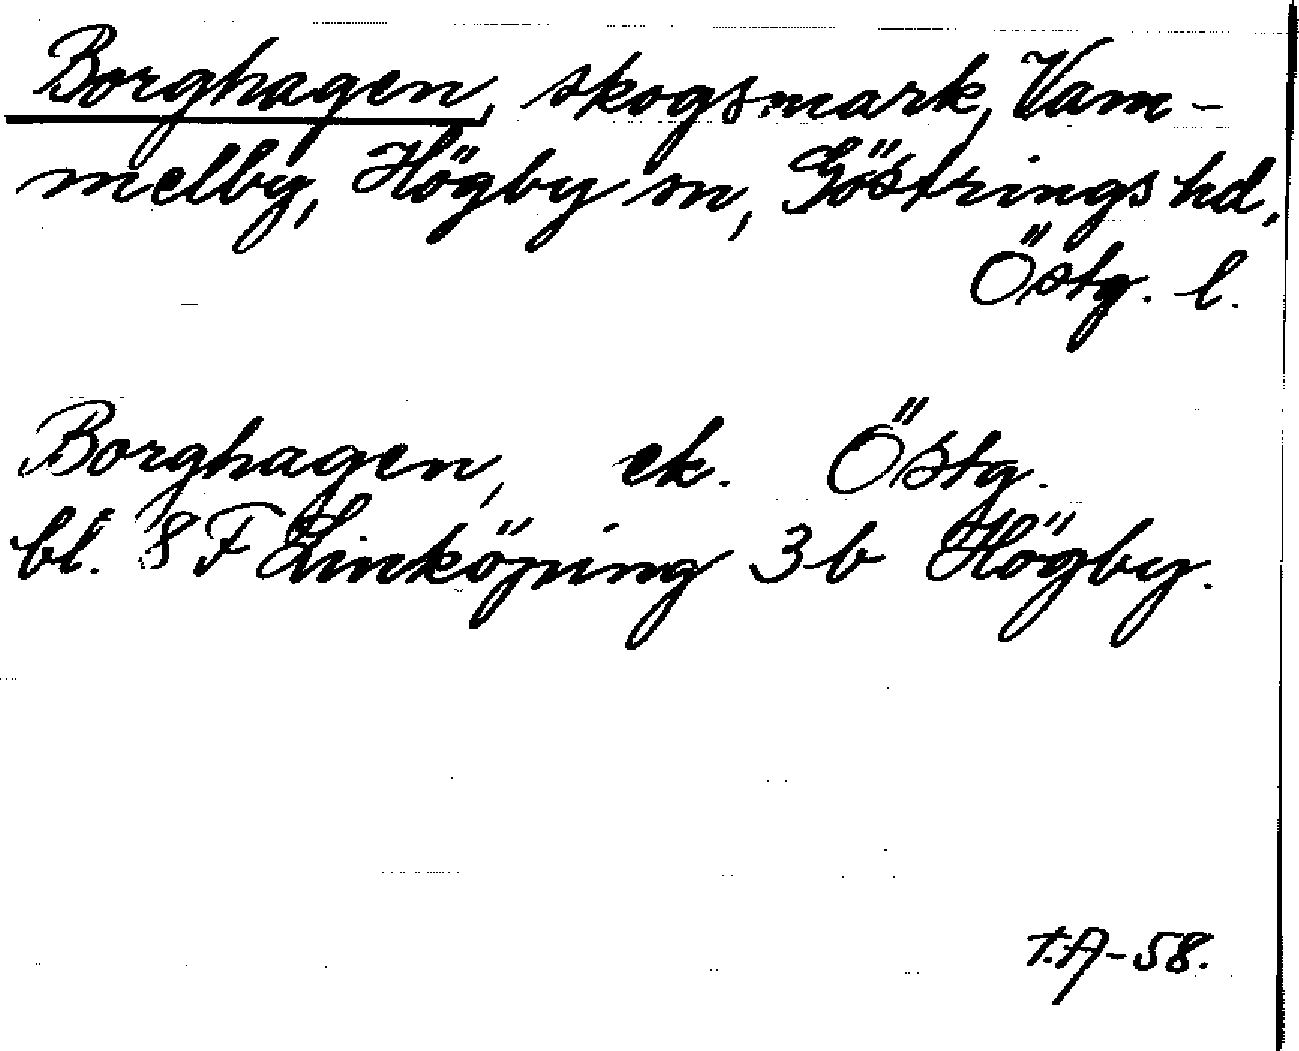 Borghagen, skogsmark, Vam-
melby, Högby sn, Göstrings hd,
Östg. l.
Borghagen, ek. Östg.
bl. 8F Linköping 3b Högby.
T.A-58.